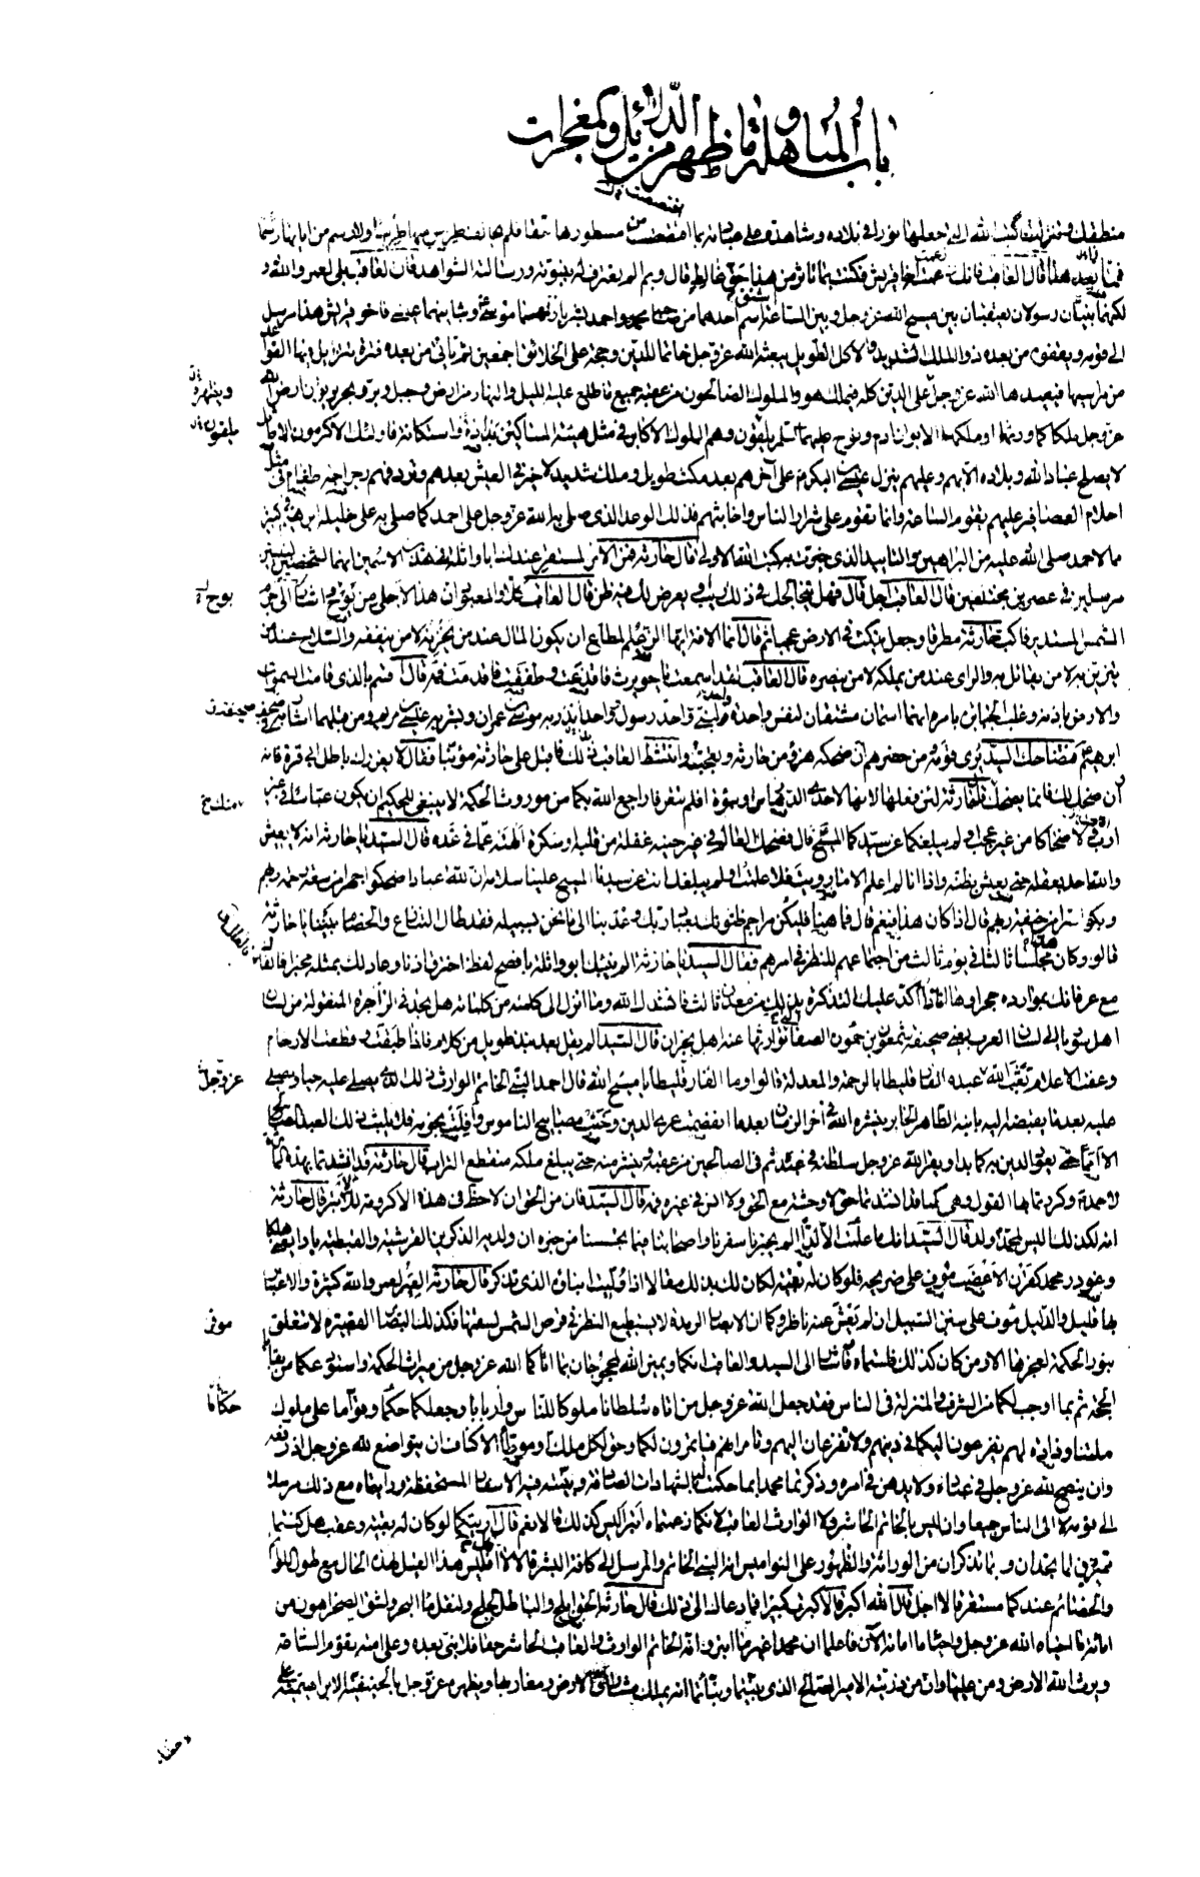 باب المباهلة وما ظهر من الدلائل والمعجزات
منطقك ومنزلتنا كتب الله التي جعلها نورا في بلاده وشاهدة على عباده بما اقتصصت من مسطورها
فمن بعد هذا قال العاقب فانك زعمت اخا قريش فكنت بما تأثر من هذا حق غالط قال وبم الم يعترف له بنبوته ورسالته الشواهد قال العاقب بلى لعمرو الله و
لكنهما نبيان رسولان يعتقبان بين مسيح الله عز وجل وبين الساعة اشتق اسم احدهما من صاحبه محمد واحمد بشر باولهما موسى وبثانيهما عيسى فاخو قريش هذا مرسل
الى قومه ويقفوه من بعده ذو الملك الشديد والاكل الطويل يبعثه الله عز وجل خاتما للدين وحجة على الخلائق اجمعين ثم تأتي من بعده فترة تتزايل فيها القواعد
من مراسيها فيعيدها الله عز وجل على الدين كله فيملك هو والملوك الصالحون من عقبه جميع ما طلع عليه الليل والنهار من ارض وجبل وبر وبحر يرثون ارض الله
ويظهره
عز وجل ملكا كما ورثها او ملكهما الابوان ادم ونوح عليهما السلم يلقون وهم الملوك الاكابر في مثل هيئة المساكين بذاذة واستكانة فاولئك الاكرمون الاماثل
يلقون
لا يصلح عباد الله وبلاده الا بهم وعليهم ينزل عيسى بن البكر على آخرهم بعد مكث طويل وملك شديد لا خير في العيش بعدهم وتردفهم رجراجة طغام في مثل
احلام العصافير عليهم يقوم الساعة وانما تقوم على شرار الناس واخابثهم فذلك الوعد الذي صلى به الله عز وجل على احمد كما صلى به على خليله ابراهيم في كثير
مما لاحمد صلى الله عليه من البراهين والتأييد الذي خبرت به كتب الله الاولى قال حارثة فمن الاثر المستقر عندك ابا واثلة في هذين الاسمين انهما لشخصين لنبيين
مرسلين في عصرين مختلفين قال العاقب اجل قال فهل يتخالجك في ذلك ريب او يعرض لك فيه ظن قال العاقب كلا والمعبود ان هذا لاجلى من بوح واشار الى جرم
بوح
الشمس المستدير فاكب حارثة مطرقا وجعل ينكت في الارض عجبا ثم قال انما الافة ايها الزعيم المطاع ان يكون المال عند من يخزنه لا من ينفقه والسلاح عند من
يتزين به لا من يقاتل به والراي عند من يملكه لا من ينصره قال العاقب لقد اسمعت يا حويرث فاقذعت وطفقت فاقدمت فمه قال اقسم بالذي قامت السموات
والارض باذنه وغلب الجبابرة بامره انهما اسمان مشتقان لنفس واحدة ولنبي واحد رسول واحد انذر به موسى بن عمران وبشر به عيسى بن مريم ومن قبلهما اشار به في صحف
ابرهيم فتضاحك السيد يري قومه ومن حضرهم ان ضحكه هزؤ من حارثة وتعجبا وانتشط العاقب ذلك فاقبل على حارثة مؤنبا فقال لا يغررك باطل ابي قرة فانه
ان ضحك لك فانما يضحك منك قال حارثة لئن فعلها لانها لاحدى الدهارس او سوءة افلم تتعرفا راجع الله بكما من موروث الحكمة لا ينبغي للحكيم ان يكون عباسا في غير
منك خ
ارب ولا ضحاكا من غير عجب او لم يبلغكما عن سيدكما المسيح قال فضحك العالم في غير حينه غفلة من قلبه او سكرة الهته عما في غده قال السيد يا حارثة انه لا يعيش
والله احد بعقله حتى يعيش بظنه واذا انا لم اعلم الا ما رويت فلا علمت او لم يبلغك انت عن سيدنا المسيح علينا سلامه ان لله عبادا ضحكوا جهرا من سعة رحمة ربهم
وبكوا سرا من خيفة ربهم قال اذا كان هذا فنعم قال فما هنا فليكن مراجم ظنونك بعباد ربك وعد بنا الى ما نحن بسبيله فقد طال التنازع والخصام بيننا يا حارثة
قالوا وكان مجلسا ثالثا في يوم ثالث من اجتماعهم للنظر في امرهم فقال السيد يا حارثة الم ينبئك ابو واثلة بافصح لفظ اخترق اذنا وعاد لك بمثله مخبرا فالقاك
مع عزماتك بموارده حجرا وها انا ذا اكد عليك التذكرة بذلك من معدن ثالث فانشدك الله وما انزل الى كلمته من كلماته هل تجد في الزاجرة المنقولة من لسان
اهل سوريا الى لسان العرب يعني صحيفة شمعون بن حمون الصفا توارثها عنه اهل نجران قال السيد الم يقل بعد نبذ طويل من كلام فاذا طبقت وقطعت الارحام
وعفت الاعلام بعث الله عبده الفارقليطا بالرحمة والمعدلة قالوا وما الفارقليطا يا مسيح الله قال احمد النبي الخاتم الوارث ذلك الذي يصلى عليه حيا ويصلى
عز وجل
عليه بعد ما يقبضه اليه بابنه الطاهر الخاير ينشره الله في آخر الزمان بعد ما انفصمت عرى الدين وخبت مصابيح الناموس وافلت نجومه فلا يلبث ذلك العبد الصالح
الا امما حتى يعود الدين به كما بدا ويقر الله عز وجل سلطانه في عبده ثم في الصالحين من عقبه وينشر منه حتى يبلغ ملكه منقطع التراب قال حارثة قد انشدتما بهذه الماثرة
لاحمد وكررتما بها القول وهي كما قد انشدتما حق لا وحشة مع الحق ولا انس في غيره فمه قال السيد فان من الحق ان لا حظ في هذه الاكرومة للابتر قال حارثة
انه لكذلك اليس لمحمد ولد قال السيد انك ما علمت الا لدا الم يخبرنا سفرنا واصحابنا فيما تجسسنا من خبره ان ولديه الذكرين القرشية والقبطية بادا يعني هلكا
وغودر محمد كقرن الاعضب موف على ضريحه فلو كان له بقية لكان لك بذلك مقالا اذا ولت ابناؤه الذي تذكر قال حارثة العبر لعمر والله كثيرة والاعتبار
بها قليل والدليل موف على سنن السبيل ان لم يعش عنه ناظر وكما ان الابصار الرمدة لا يستطيع النظر في قرص الشمس لسقمها فكذلك البصائر القصيرة لا تتعلق
موفى
بنور الحكمة لعجزها الا ومن كان كذلك فلستماه واشار الى السيد والعاقب انكما ويمين الله لمحجوجان بما اتاكما الله عز وجل من ميراث الحكمة واستودعكما من بقايا
الحجة ثم بما اوجب لكما من الشرف والمنزلة في الناس فقد جعل الله عز وجل من اتاه سلطانا ملوكا للناس واربابا وجعلكما حكما وقواما على ملوك
حكاما
ملتنا وذادة لهم يفزعون اليكما في دينهم ولا تفزعان اليهم وتامرانهم فياتمرون لكما وحق لكل ملك او موطأ الاكناف ان يتواضع لله عز وجل اذ رفعه
وان ينصح لله عز وجل في عباده ولا يدهن في امره وذكرتما محمدا بما حكمت له الشهادات الصادقة وبينته فيه الاسفار المستحفظة ورايتماه مع ذلك مرسلا
الى قومه لا الى الناس جميعا وان ليس بالخاتم الحاشر ولا الوارث العاقب لانكما زعمتماه ابتر اليس كذلك قالا نعم قال ارايتكما لو كان له بقية وعقب هل كنتما
تمتريان لما تجدان وبما تذكران من الوراثة والظهور على النواميس انه النبي الخاتم والمرسل الى كافة البشر قالا لا قال افليس هذا القيل لهذه الحال مع طول اللوائم
والخصائم عندكما مستقرا قالا اجل قال الله اكبر قالا كبرت كبيرا فما دعاك الى ذلك قال حارثة الحق ابلج والباطل لجلج ولنقل ماء البحر ولشق الصخر اهون من
اماتة ما احياه الله عز وجل واحياء ما اماته الآن فاعلما ان محمدا غير ما ابتر وانه الخاتم الوارث والعاقب الحاشر حقا فلا نبي بعده وعلى امته تقوم الساعة
ويرث الله الارض ومن عليها وان من ذريته الامير الصالح الذي بينتما ونبأتما انه يملك مشارق الارض ومغاربها ويظهره عز وجل بالحنيفية الابراهيمية على